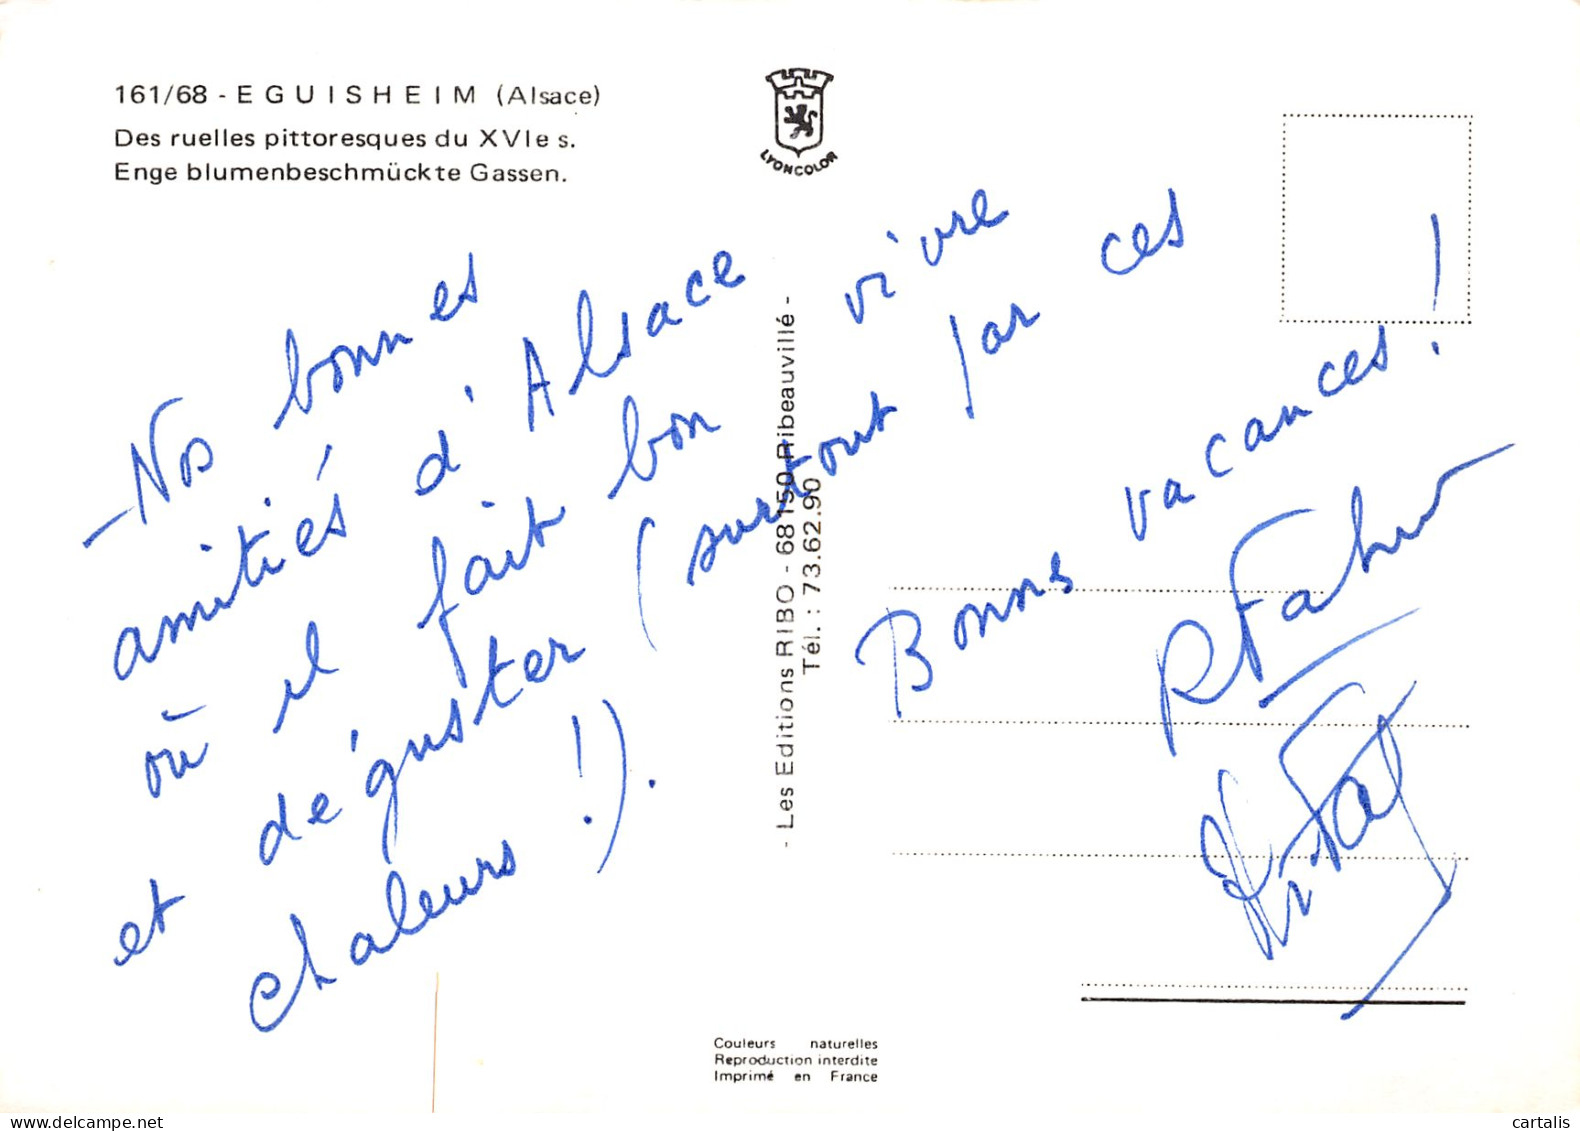 161/68 - EGUISHEIM (Alsace)
Des ruelles pittoresques du XVIe s.
Enge blumenbeschmückte Gassen.
LYONCOLOR
- Nos bonnes
amitiés d'Alsace
où il fait bon vivre
et déguster (surtout par ces
chaleurs !).
Bonnes vacances !
- Les Editions RIBO - 68150 Ribeauvillé -
Tél. : 73.62.90
Couleurs naturelles
Reproduction interdite
Imprimé en France
cartalis